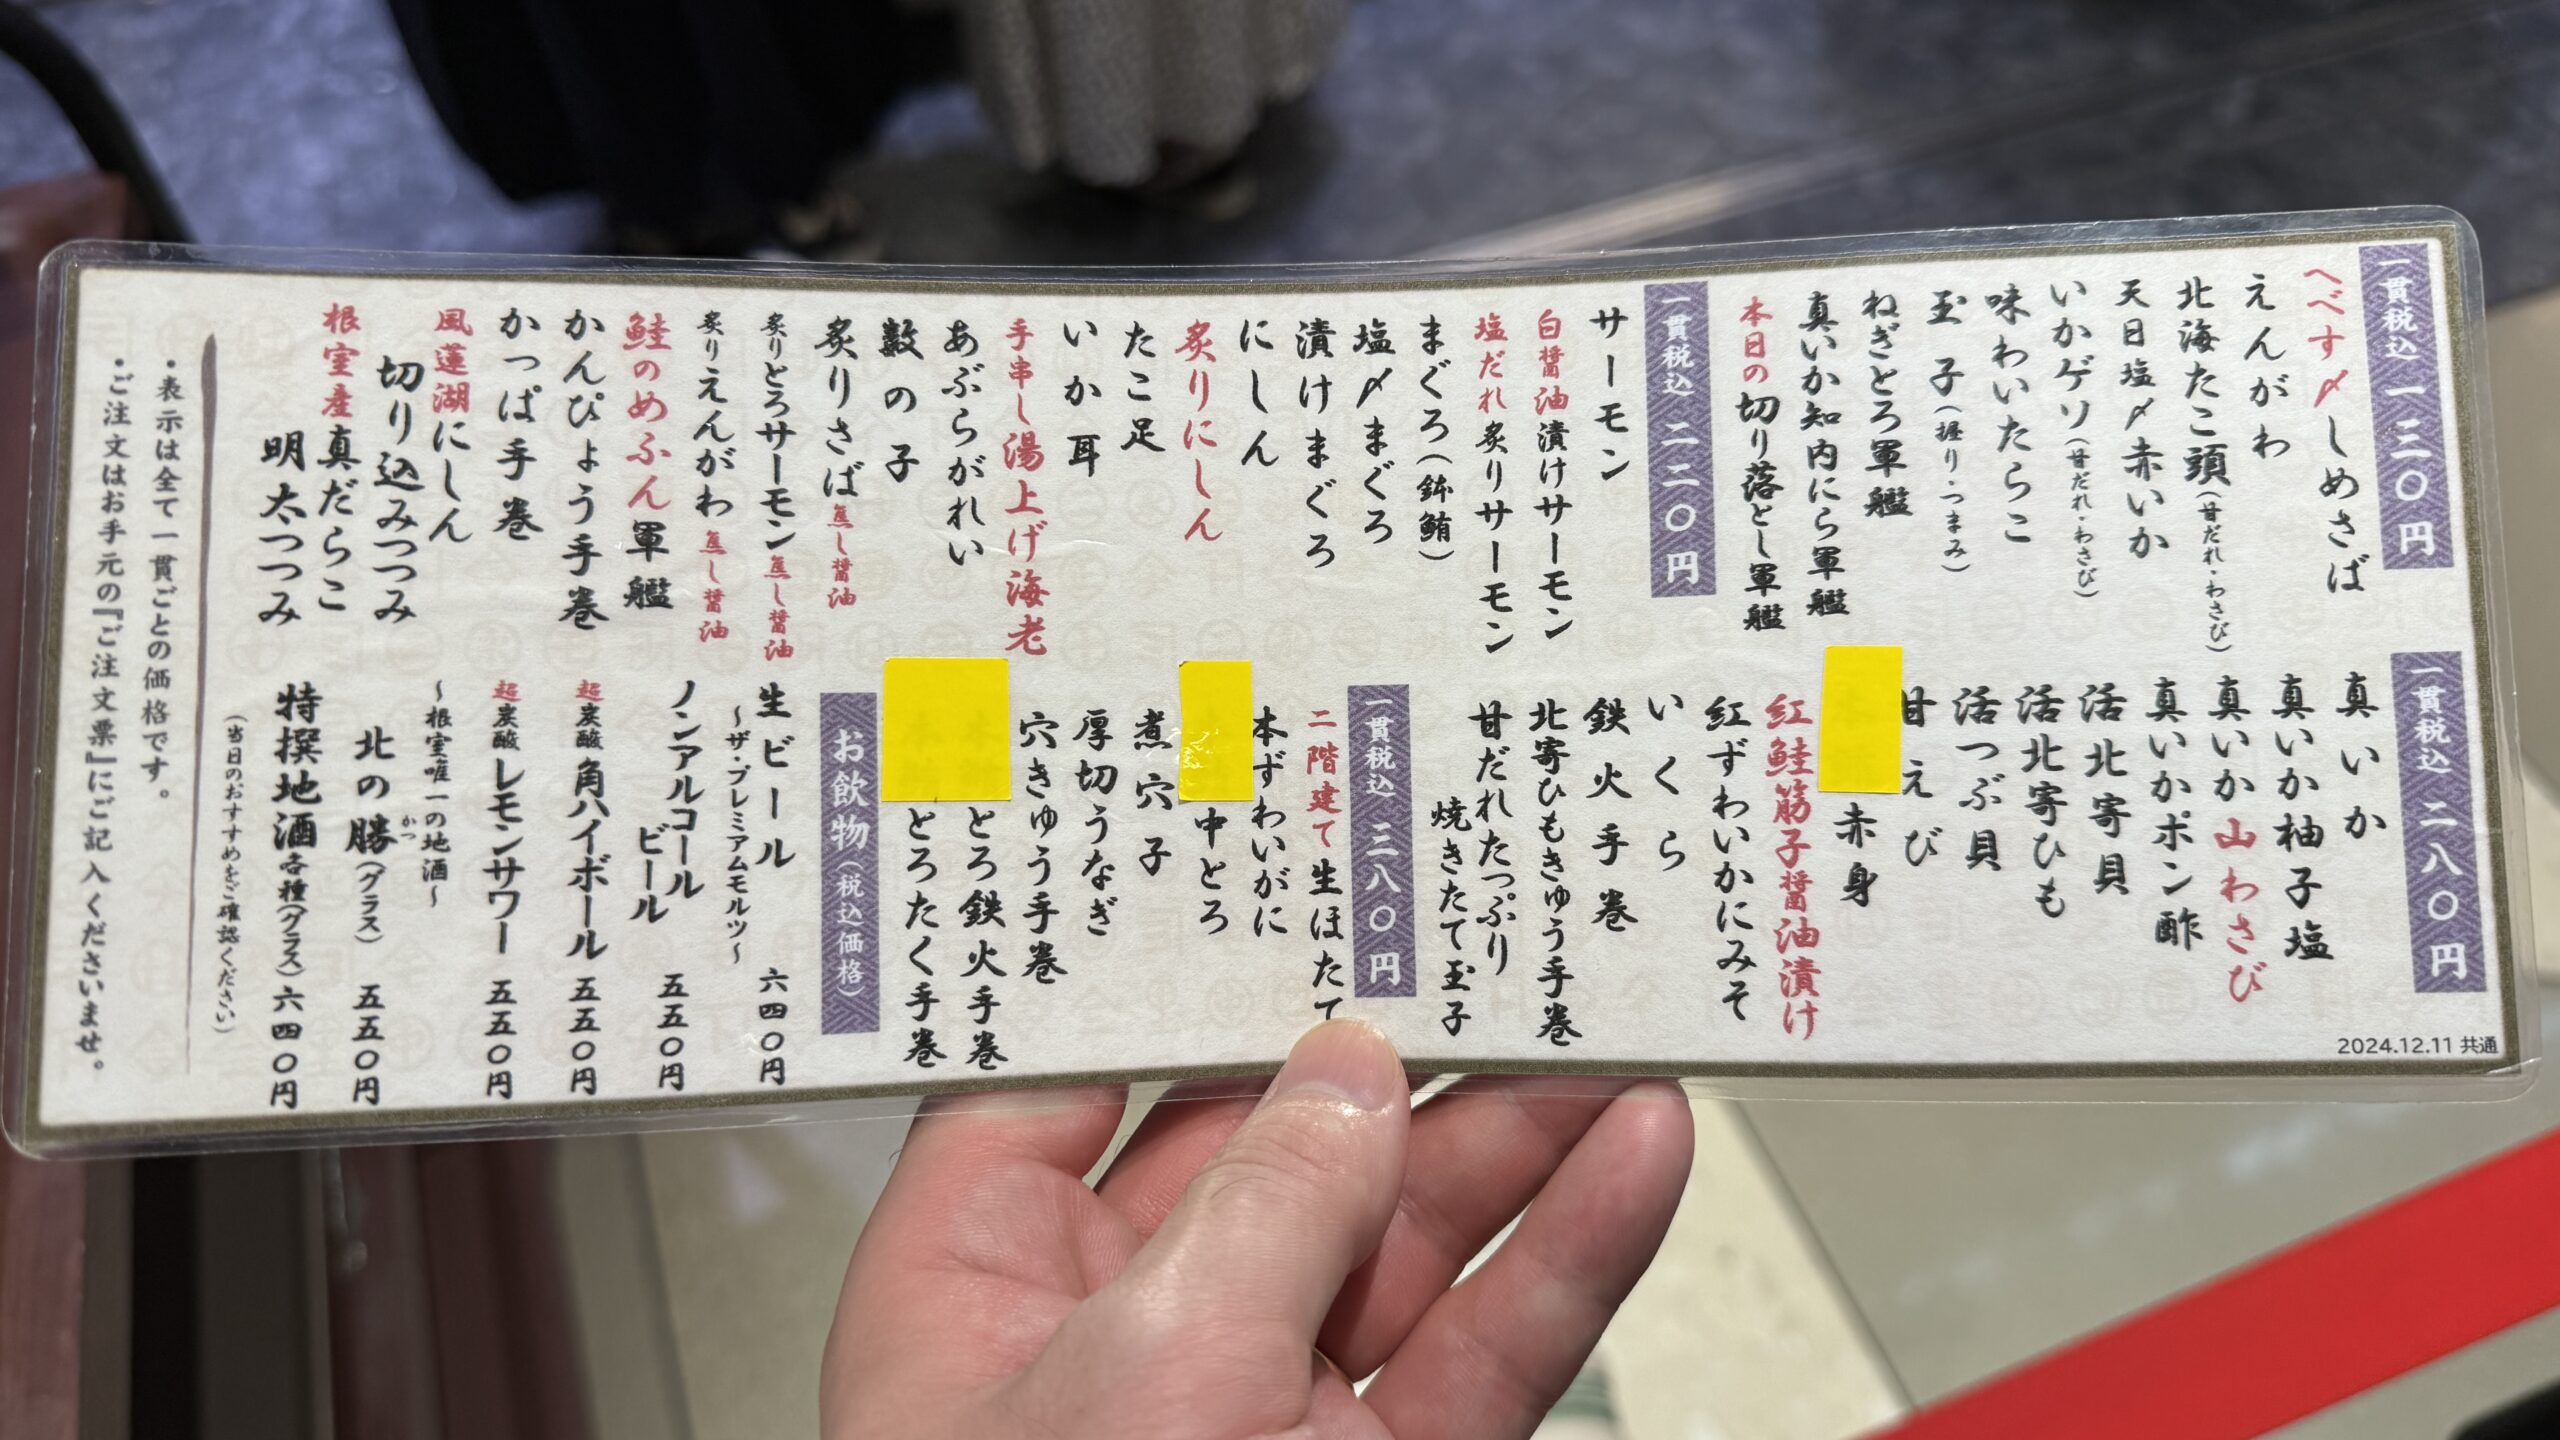 一貫税込 一三〇円
へべす〆しめさば
えんがわ
北海たこ頭(甘だれ・わさび)
天日塩〆赤いか
いかゲソ(甘だれ・わさび)
味わいたらこ
玉子(握り・つまみ)
ねぎとろ軍艦
真いか知内にら軍艦
本日の切り落とし軍艦
一貫税込 二二〇円
サーモン
白醤油漬けサーモン
塩だれ炙りサーモン
まぐろ(鉢鮪)
塩〆まぐろ
漬けまぐろ
にしん
炙りにしん
たこ足
いか耳
手串し湯上げ海老
あぶらがれい
数の子
炙りさば焦し醤油
炙りとろサーモン焦し醤油
炙りえんがわ焦し醤油
鮭のめふん軍艦
かんぴょう手巻
かっぱ手巻
風蓮湖にしん
切り込みつつみ
根室産真だらこ
明太つつみ
一貫税込 二八〇円
真いか
真いか柚子塩
真いか山わさび
真いかポン酢
活北寄貝
活北寄ひも
活つぶ貝
甘えび
赤身
紅鮭筋子醤油漬け
紅ずわいかにみそ
いくら
鉄火手巻
北寄ひもきゅう手巻
甘だれたっぷり
焼きたて玉子
一貫税込 三八〇円
二階建て生ほたて
本ずわいがに
中とろ
煮穴子
厚切うなぎ
穴きゅう手巻
とろ鉄火手巻
とろたく手巻
お飲物(税込価格)
生ビール 六四〇円
~ザ・プレミアムモルツ~
ノンアルコール
ビール 五五〇円
超炭酸角ハイボール 五五〇円
超炭酸レモンサワー 五五〇円
~根室唯一の地酒~
北の勝(グラス) 五五〇円
かつ
特撰地酒各種(グラス)六四〇円
(当日のおすすめをご確認ください)
・表示は全て一貫ごとの価格です。
・ご注文はお手元の『ご注文票』にご記入くださいませ。
2024.12.11 共通